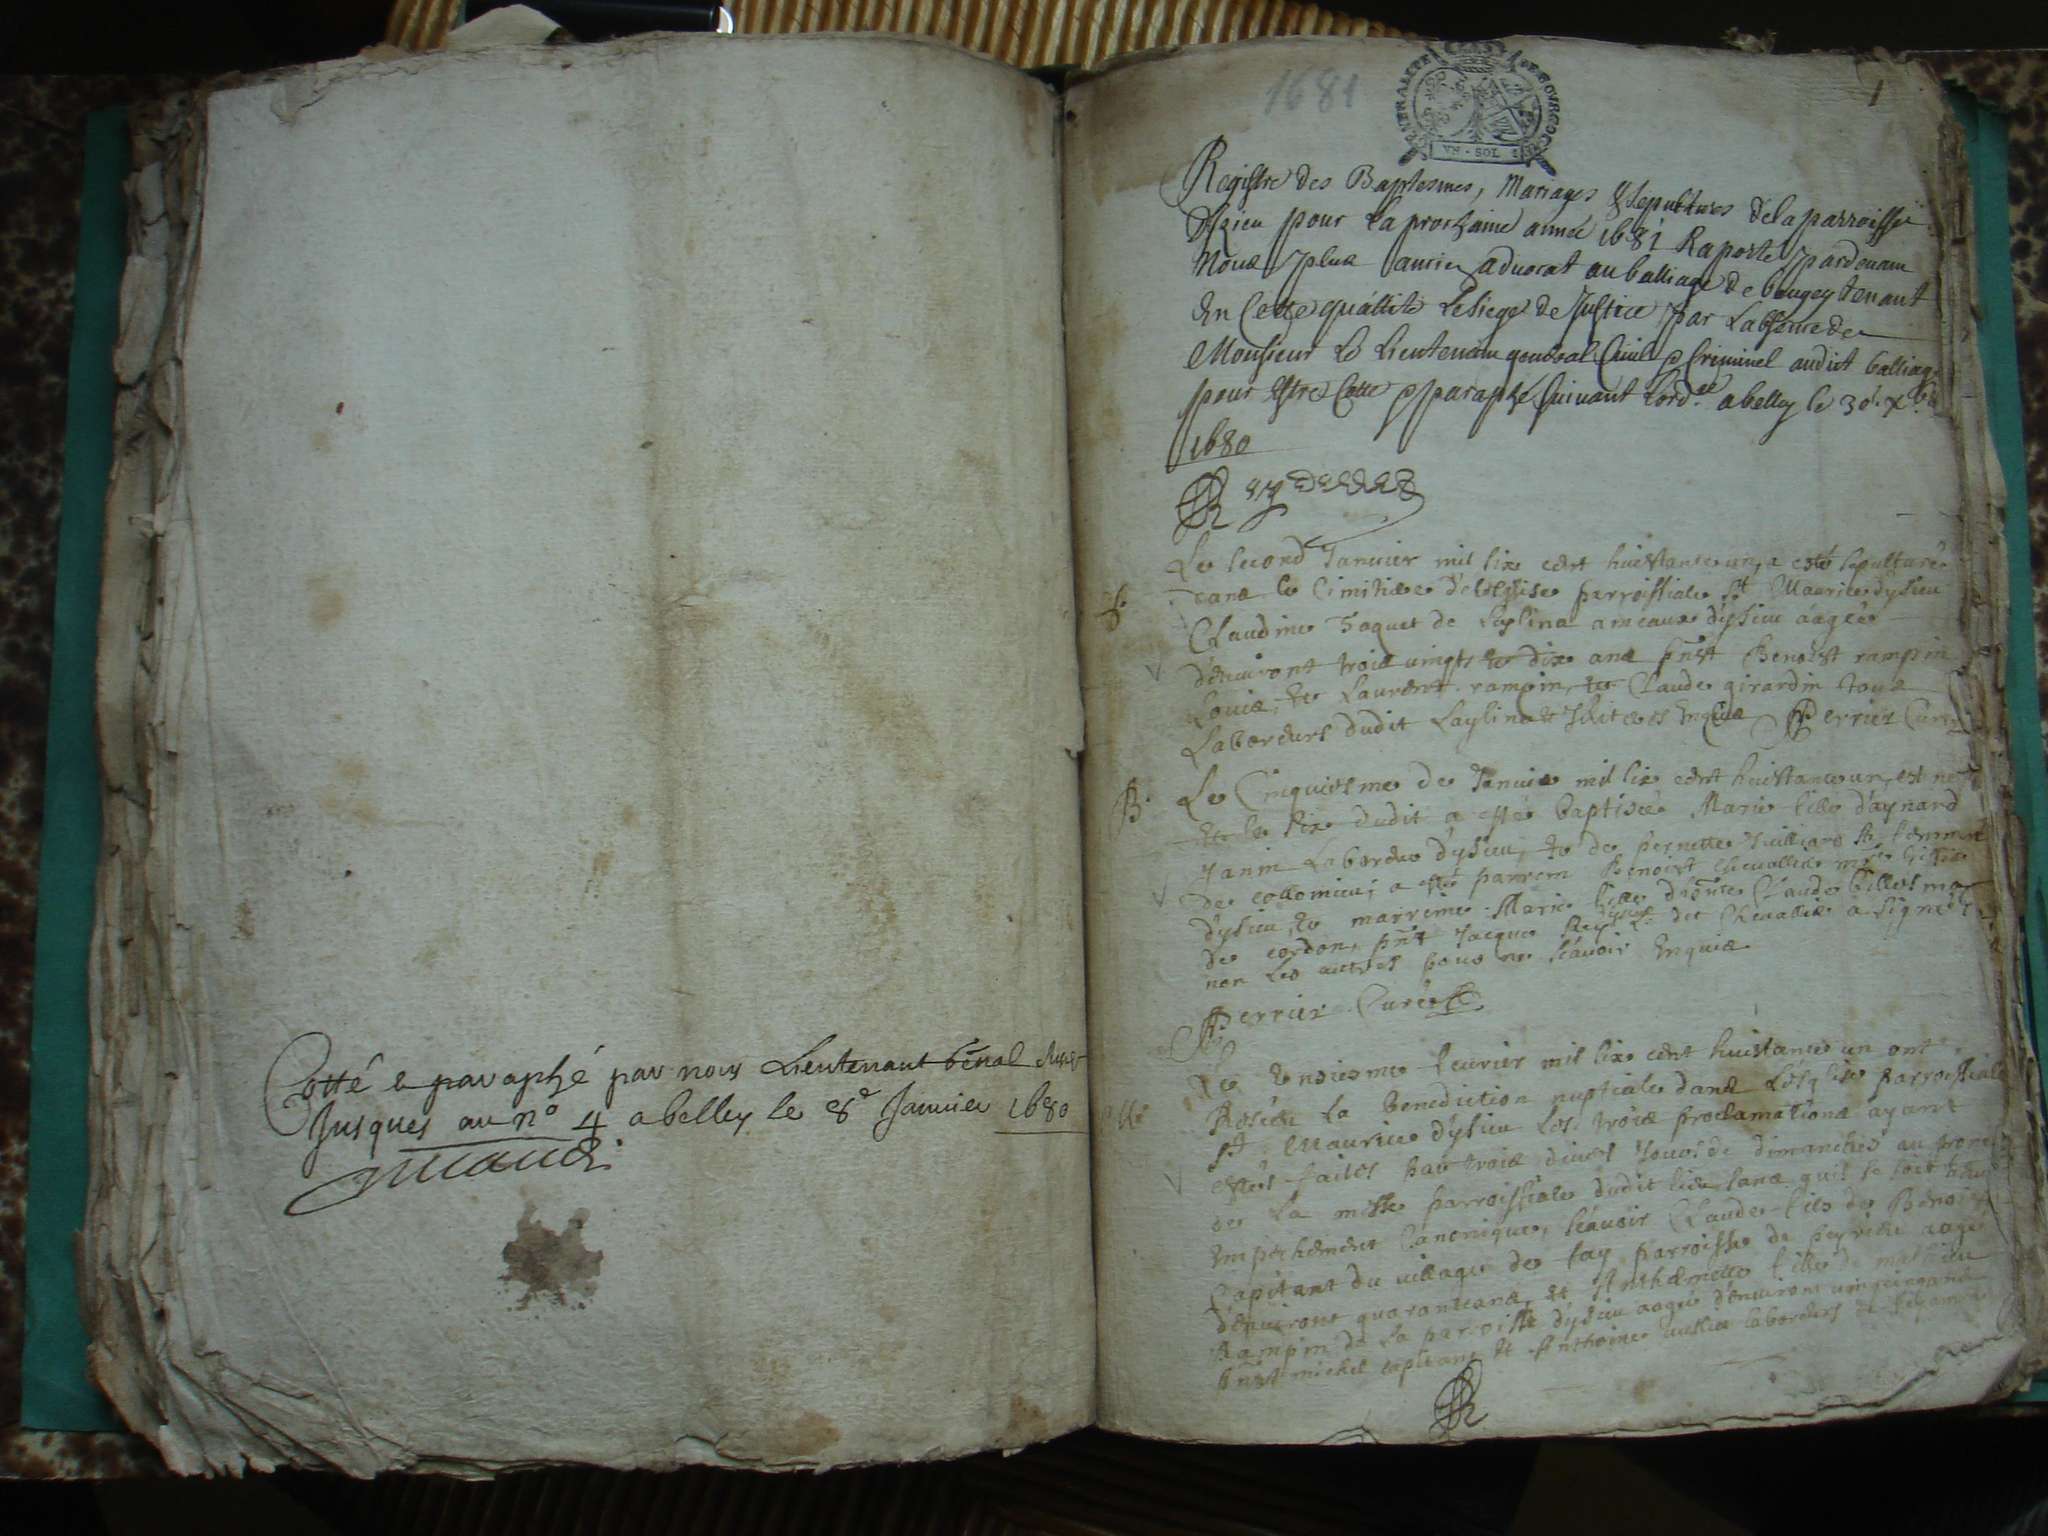 Cotté & paraphé par nous Lieutenant Gñal
Jusques au n° 4 a belley le 8e Janvier 1680
1681
1
GENERALITE DE BOVRGOGNE
VN · SOL
Registre des Baptesmes, Mariages & Sepultures de la parroisse
d'Izieu pour La prochaine année 1681 Raporté pardevant
Nous plus ancien advocat au balliage de bougey tenant
En Cette quallité Le siege de Justice par Labsence de
Monsieur Le Lieutenant general Civil & Criminel audict balliage
pour Estre Cotté & paraphé suivant Lord.ce a belley le 30e Xbre
1680
Le second Januier mil six cent huictante un, a esté sepulturée
dans le Cimitiere de lesglise parroissiale St Maurice d'ysieu
Claudine Jaquet de Laylina ameaux d'ysieu aagée
d'enuiront trois uingts & dix ans pñst Benoist rampin
Louis, & Laurent rampin, & Claude girardin tous
Laboreurs dudit Laylina & Illiterés Enquis Perrier Curé
B. Le Cinquiesme de Januier mil six cent huictante un, est née
& le six dudit a esté baptisée Marie fille d'aynard
Janin Laboreur d'ysieu, & de pernette sa femme
de collomieu; a esté parrein Benoist Cheuallier
d'ysieu, & marreine Marie fille de Claude
de cordon, pñst Jacque Rey d'ysieu Led. Cheuallier a signé &
non Les autres pour ne scauoir Enquis
Perrier Curé
M. Le onziesme feurier mil six cent huictante un ont
Receu La Benediction nuptiale dans Lesglise parroissiale
St. Maurice d'ysieu Les trois proclamations ayant
estés faites par trois diuers Jours de dimanches au prone
de La messe parroissiale dudit lieu sans qu'il se soit
Empechement Canonique, scauoir Claude fils de Benoist
Capitant du uillage de fay parroisse de peyrieu aagé
d'enuiront quarante ans, & Anthelmette fille de
Rampin de La parroisse d'ysieu aagée d'enuiront uingt cinq ans
pñst michel capitant & Anthoine laboreurs de